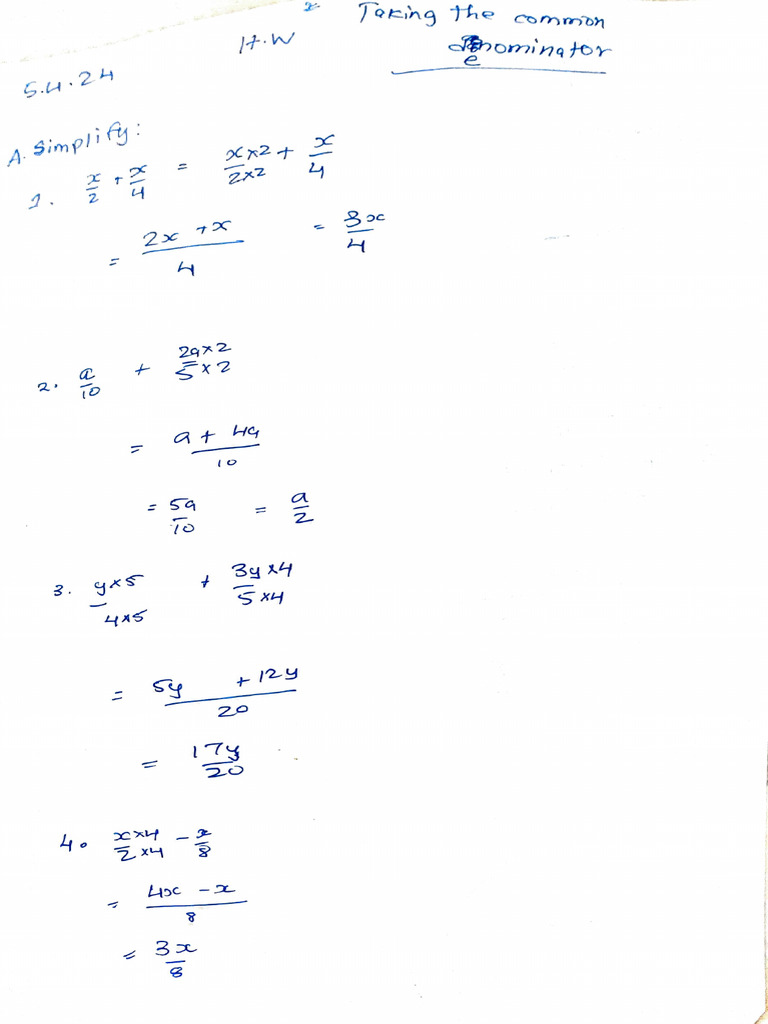 Taking the common
H.W
denominator
5.4.24
A. Simplify:
1. x/2 + x/4 = x×2/2×2 + x/4
= 2x + x/4 = 3x/4
2. a/10 + 2a×2/5×2
= a + 4a/10
= 5a/10 = a/2
3. y×5/4×5 + 3y×4/5×4
= 5y + 12y/20
= 17y/20
4. x×4/2×4 - x/8
= 4x - x/8
= 3x/8